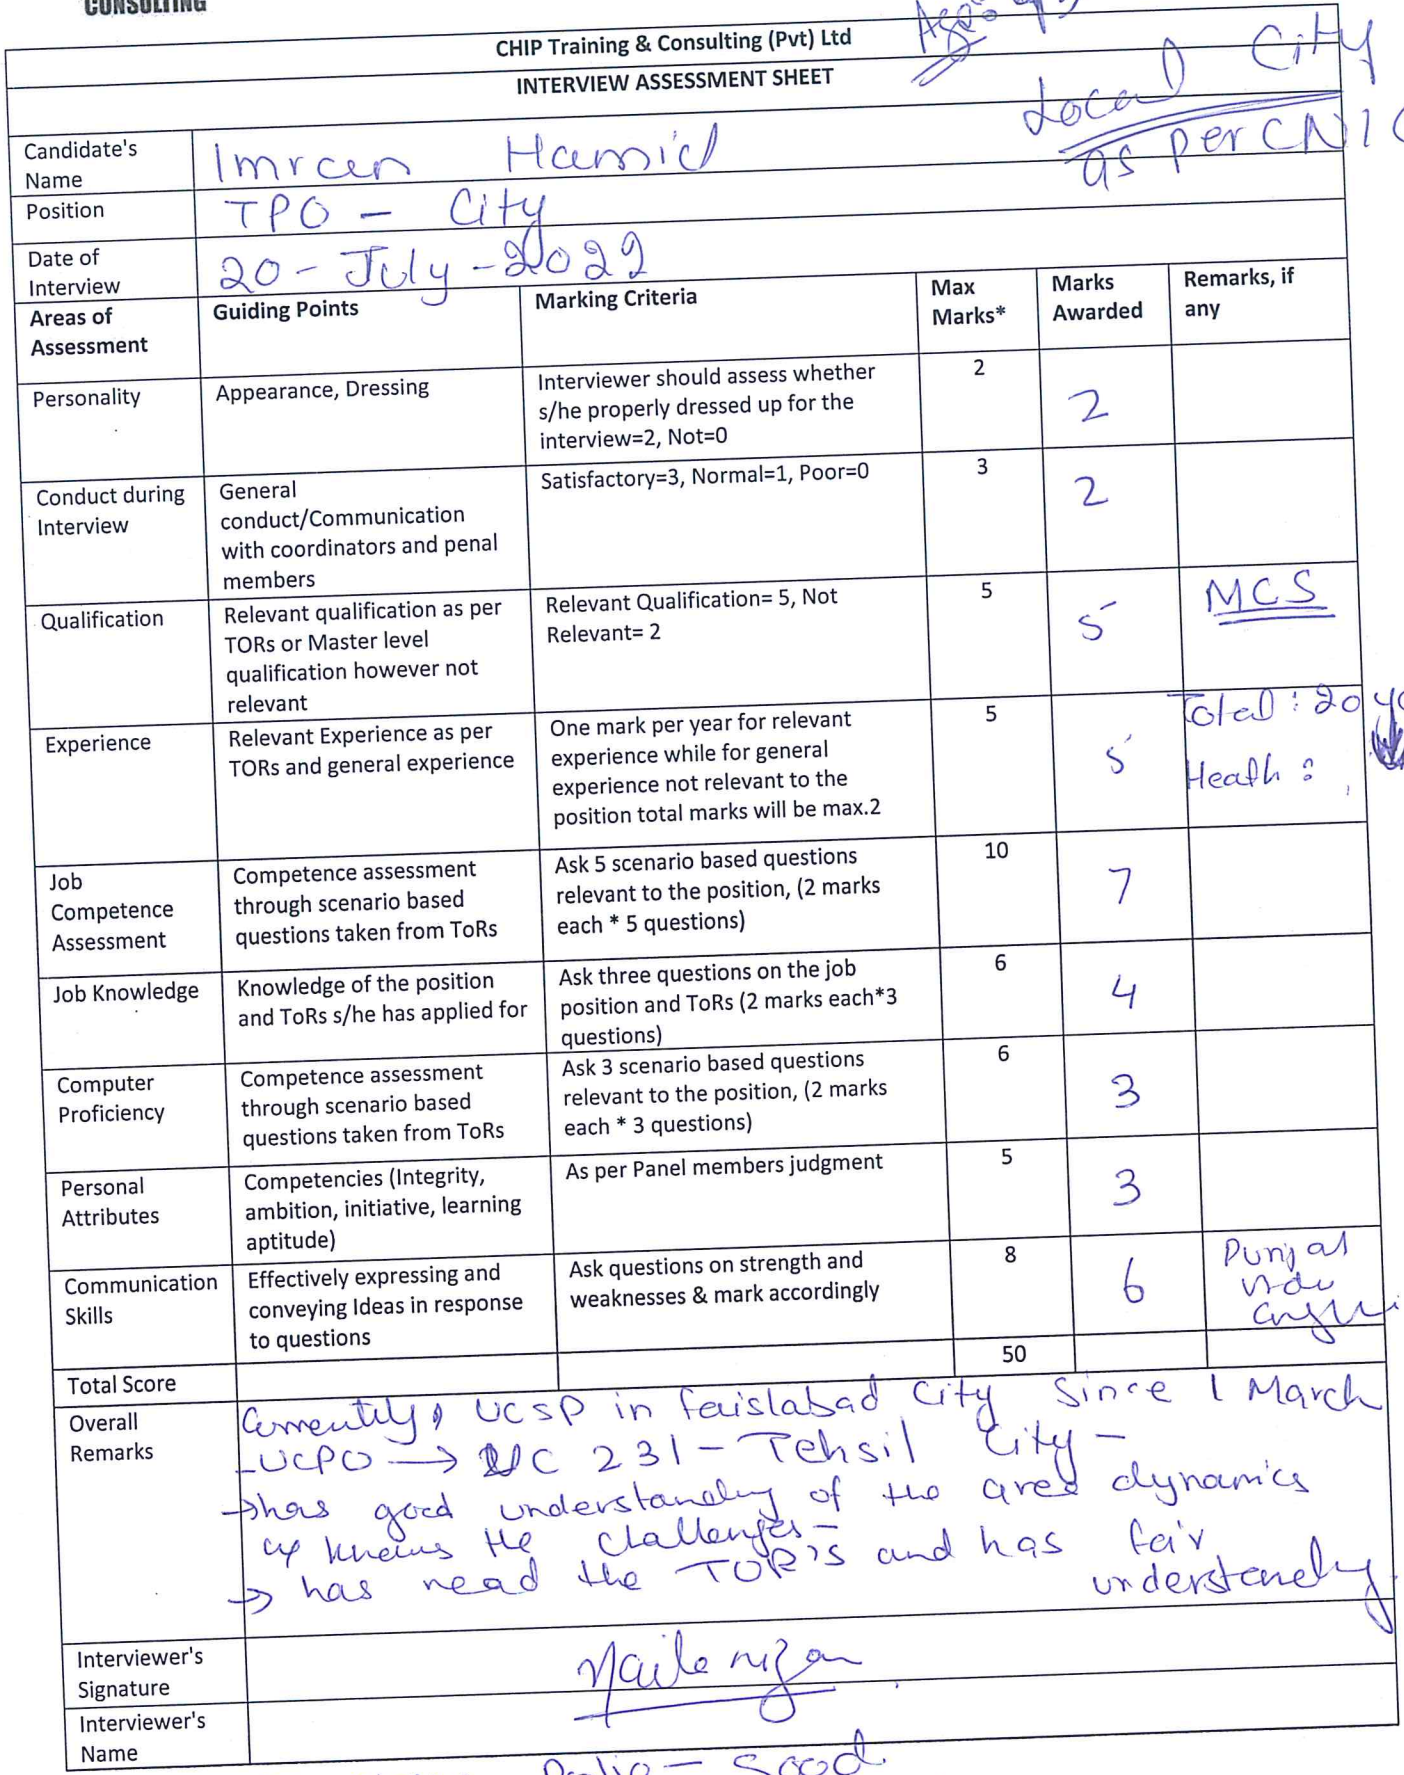 CONSULTING
CHIP Training & Consulting (Pvt) Ltd
INTERVIEW ASSESSMENT SHEET
Local City
as per CNIC
Candidate's Name
Imran Hamid
Position
TPO - City
Date of Interview
20-July-2022
Areas of Assessment
Guiding Points
Marking Criteria
Max Marks*
Marks Awarded
Remarks, if any
Personality
Appearance, Dressing
Interviewer should assess whether
s/he properly dressed up for the
interview=2, Not=0
2
2
Conduct during
Interview
General
conduct/Communication
with coordinators and penal
members
Satisfactory=3, Normal=1, Poor=0
3
2
Qualification
Relevant qualification as per
TORs or Master level
qualification however not
relevant
Relevant Qualification= 5, Not
Relevant= 2
5
5
MCS
Experience
Relevant Experience as per
TORs and general experience
One mark per year for relevant
experience while for general
experience not relevant to the
position total marks will be max.2
5
5
Total : 20
Health :
Job
Competence
Assessment
Competence assessment
through scenario based
questions taken from ToRs
Ask 5 scenario based questions
relevant to the position, (2 marks
each * 5 questions)
10
7
Job Knowledge
Knowledge of the position
and ToRs s/he has applied for
Ask three questions on the job
position and ToRs (2 marks each*3
questions)
6
4
Computer
Proficiency
Competence assessment
through scenario based
questions taken from ToRs
Ask 3 scenario based questions
relevant to the position, (2 marks
each * 3 questions)
6
3
Personal
Attributes
Competencies (Integrity,
ambition, initiative, learning
aptitude)
As per Panel members judgment
5
3
Communication
Skills
Effectively expressing and
conveying Ideas in response
to questions
Ask questions on strength and
weaknesses & mark accordingly
8
6
Urdu
Total Score
50
Overall
Remarks
Currently, UCSP in faislabad City Since 1 March
-UCPO → UC 231 - Tehsil City -
→ has good understanding of the area dynamics
knows the challenges -
→ has read the TOR'S and has fair
understanding
Interviewer's
Signature
Interviewer's
Name
Polio - Good